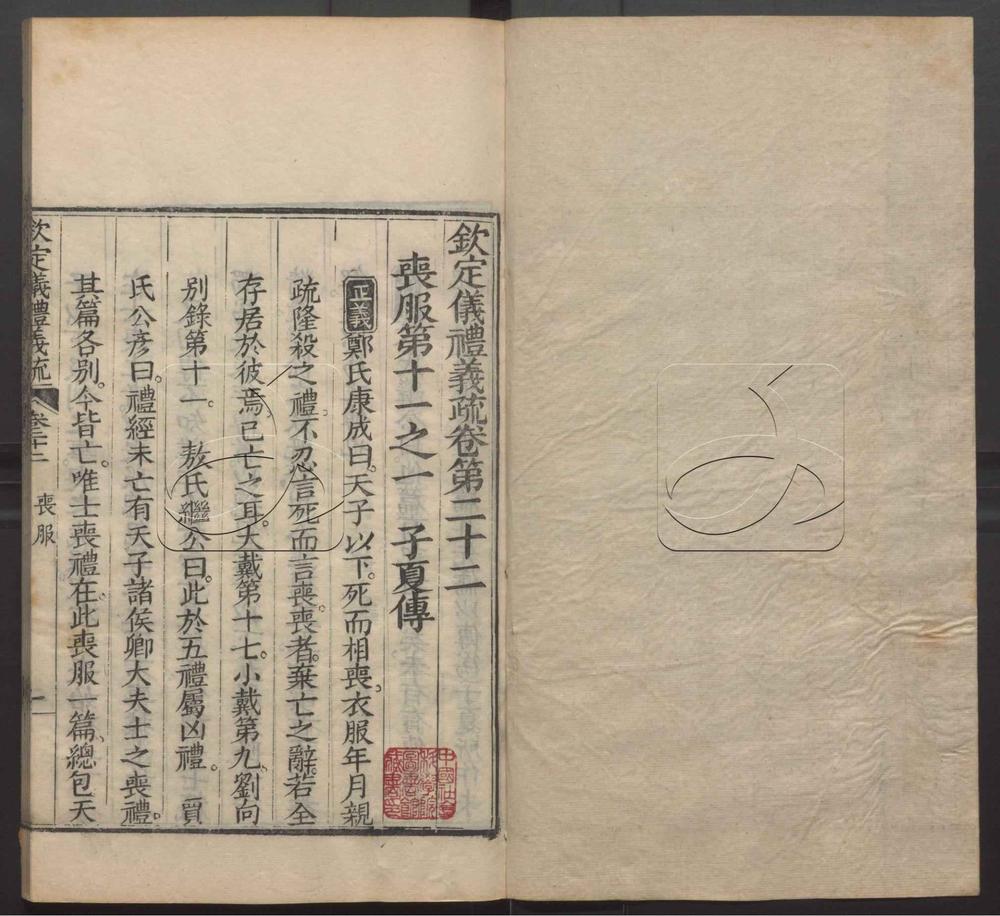 欽定儀禮義疏卷第二十二
喪服第十一之一　子夏傳
正義鄭氏康成曰。天子以下。死而相喪。衣服年月親
疏隆殺之禮。不忍言死而言喪。喪者。棄亡之辭。若全
存居於彼焉。已亡之耳。大戴第十七。小戴第九。劉向
別錄第十一。　敖氏繼公曰。此於五禮屬凶禮。　賈
氏公彥曰。禮經未亡。有天子諸侯卿大夫士之喪禮。
其篇各別。今皆亡。唯士喪禮在。此喪服一篇。總包天
欽定儀禮義疏　卷二十二　喪服　一